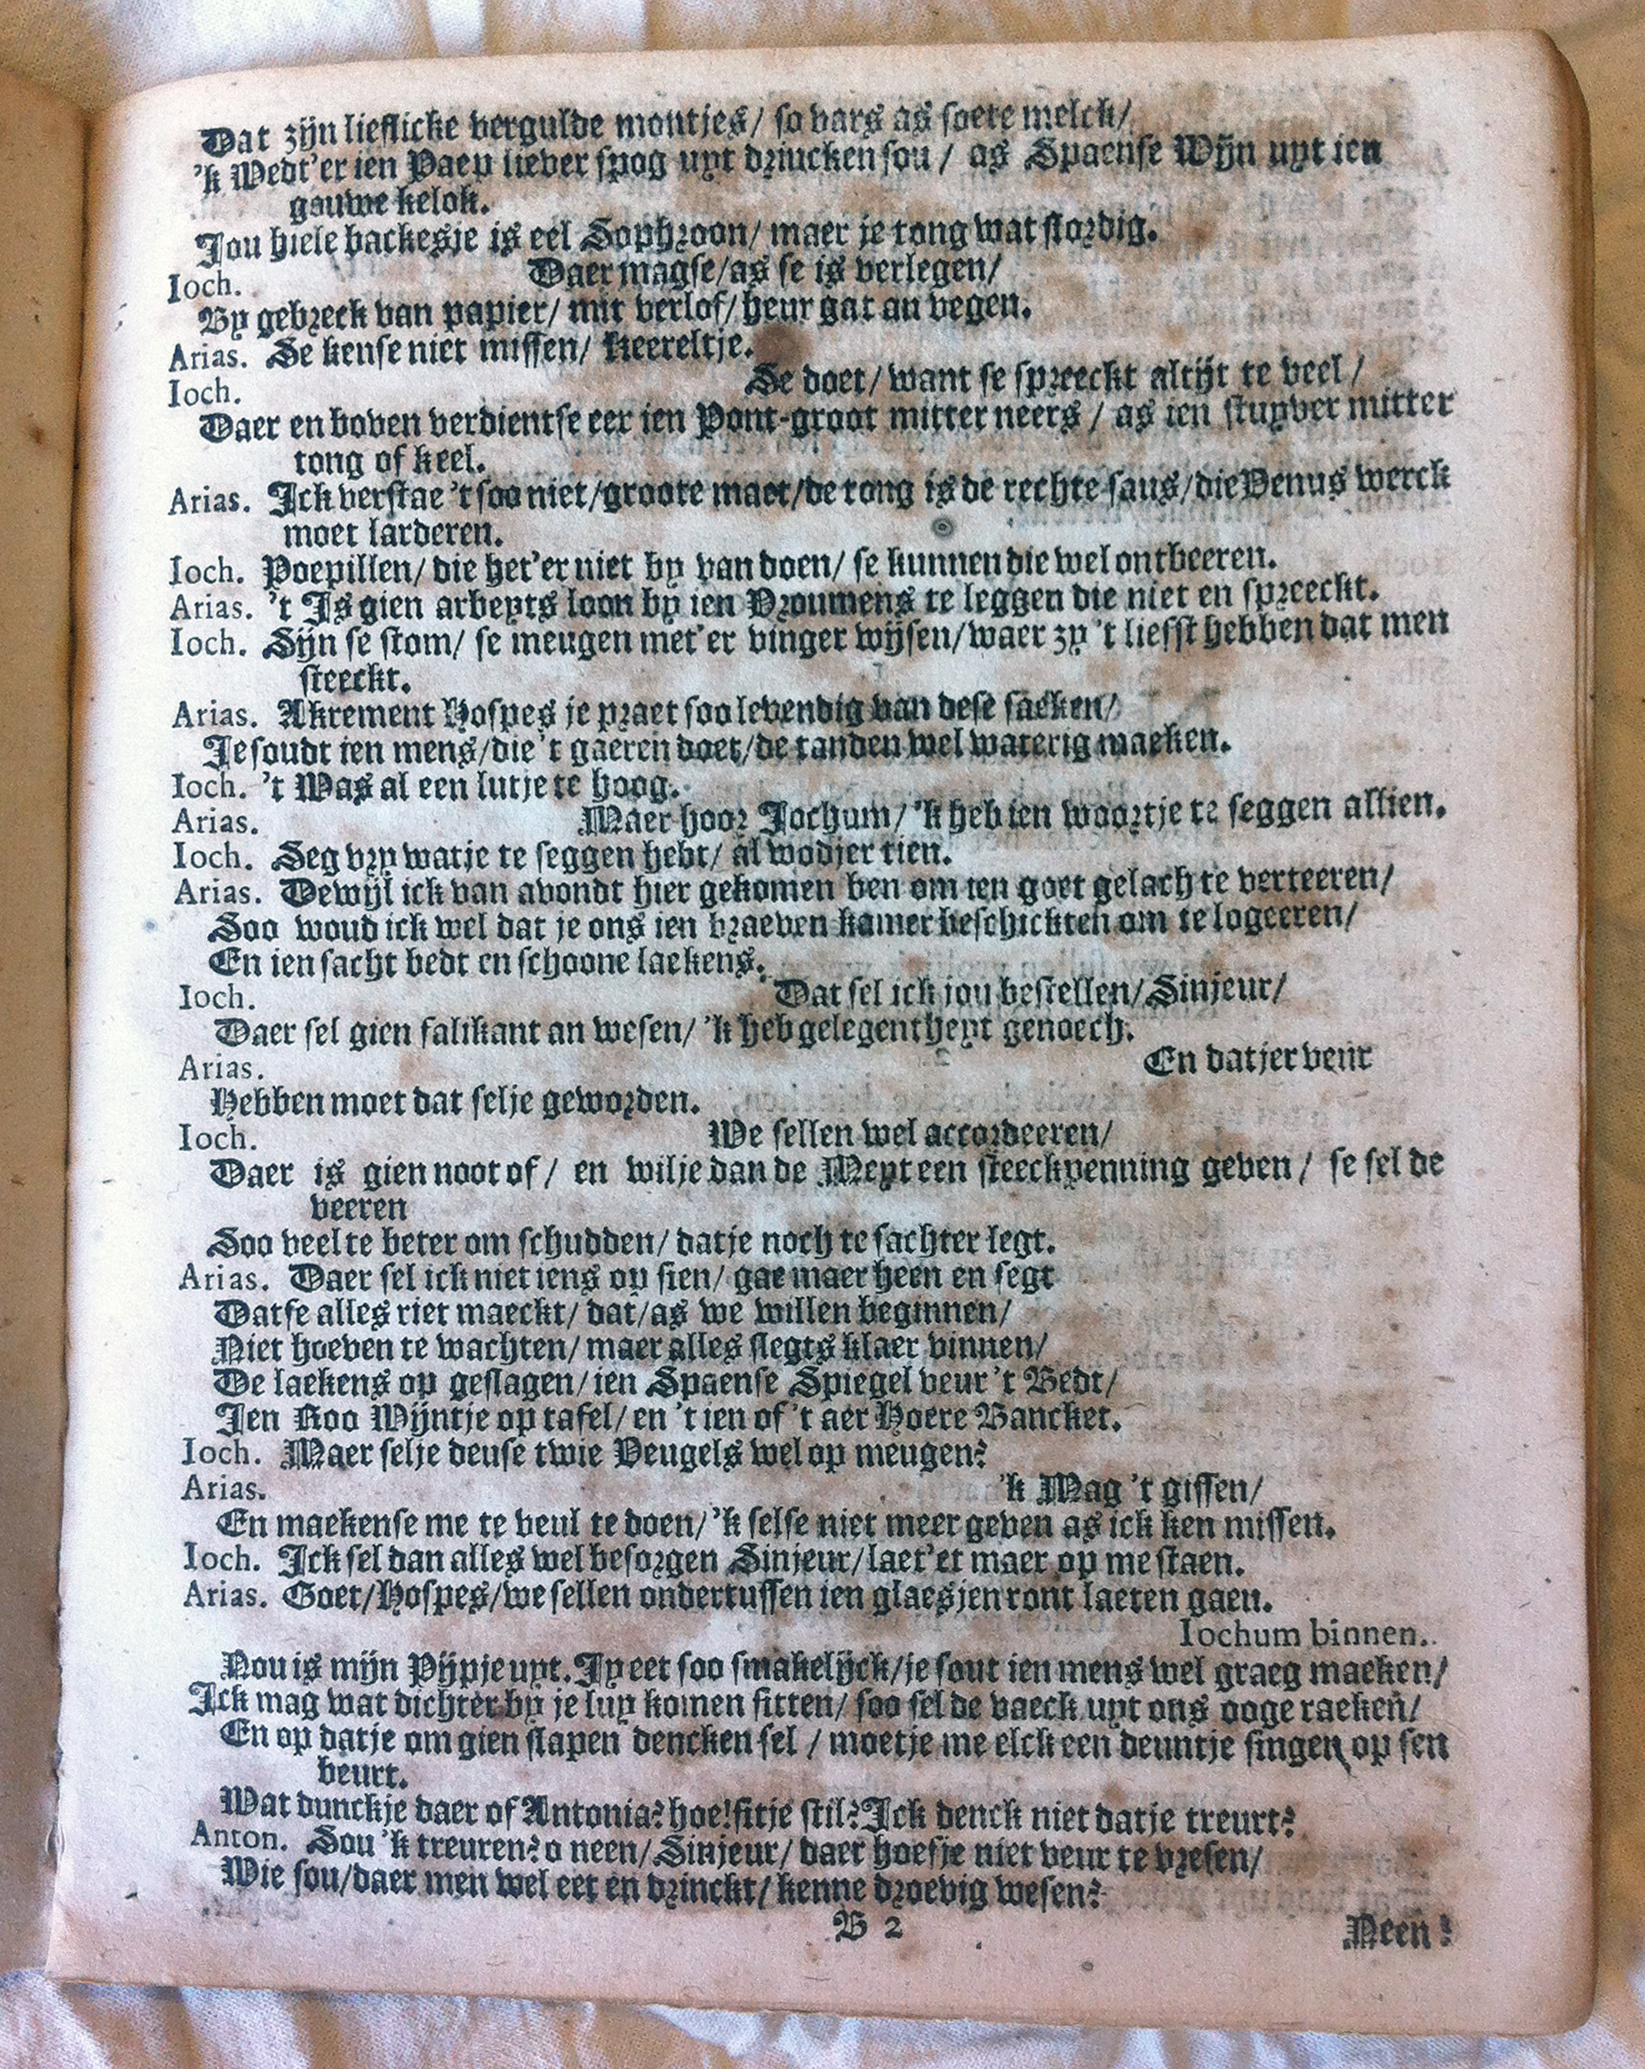 Dat zijn lieflicke vergulde montjes/ so vars as soete melck/
'k Wedt'er ien Paep liever spog uyt drincken sou / as Spaense Wijn uyt ien
gouwe kelok.
Jou hiele backesje is eel Sophroon/ maer je tong wat slordig.
Ioch. Daer magse/as se is verlegen/
By gebreck van papier/ mit verlof/ heur gat an vegen.
Arias. Se kense niet missen/ Keereltje.
Ioch. Se doet/ want se spreeckt altijt te veel /
Daer en boven verdientse eer ien Pont-groot mitter neers / as ien stuyver mitter
tong of keel.
Arias. Ick verstae 't soo niet/groote maet/de tong is de rechte saus/die Venus werck
moet larderen.
Ioch. Poepillen/ die het'er niet by van doen/ se kunnen die wel ontbeeren.
Arias. 't Is gien arbeyts loon by ien Vroumens te leggen die niet en spreeckt.
Ioch. Sijn se stom/ se meugen met'er vinger wijsen/waer zy 't liefst hebben dat men
steeckt.
Arias. Akrement Hospes je praet soo levendig van dese saeken/
Je soudt ien mens/die 't gaeren doet/de tanden wel waterig maeken.
Ioch. 't Was al een lutje te hoog.
Arias. Maer hoor Jochum/ 'k heb ien woortje te seggen allien.
Ioch. Seg vry watje te seggen hebt/ al wodjer tien.
Arias. Dewijl ick van avondt hier gekomen ben om ien goet gelach te verteeren/
Soo woud ick wel dat je ons ien braeven kamer beschickten om te logeeren/
En ien sacht bedt en schoone laekens.
Ioch. Dat sel ick jou bestellen/ Sinjeur/
Daer sel gien falikant an wesen/ 'k heb gelegentheyt genoech.
Arias. En datjer veur
Hebben moet dat selje geworden.
Ioch. We sellen wel accordeeren/
Daer is gien noot of / en wilje dan de Meyt een steeckpenning geven / se sel de
veeren
Soo veel te beter om schudden/ datje noch te sachter legt.
Arias. Daer sel ick niet iens op sien/ gae maer heen en segt
Datse alles riet maeckt/ dat/as we willen beginnen/
Niet hoeven te wachten/ maer alles slegts klaer vinnen/
De laekens op geslagen/ ien Spaense Spiegel veur 't Bedt/
Ien Roo Wijntje op tafel/ en 't ien of 't aer Hoere Bancket.
Ioch. Maer selje deuse twie Veugels wel op meugen?
Arias. 'k Mag 't gissen/
En maekense me te veul te doen/ 'k selse niet meer geven as ick ken missen.
Ioch. Ick sel dan alles wel besorgen Sinjeur/ laet'et maer op me staen.
Arias. Goet/Hospes/we sellen ondertussen ien glaesjen ront laeten gaen.
Iochum binnen.
Nou is mijn Pijpje uyt. Jy eet soo smakelijck/je sout ien mens wel graeg maeken/
Ick mag wat dichter by je luy komen sitten/ soo sel de vaeck uyt ons ooge raeken/
En op datje om gien slapen dencken sel / moetje me elck een deuntje singen op sen
beurt.
Wat dunckje daer of Antonia? hoe! sitje stil? Ick denck niet datje treurt?
Anton. Sou 'k treuren? o neen/ Sinjeur/ daer hoefje niet veur te vresen/
Wie sou/daer men wel eet en drinckt/ kenne droevig wesen?
B 2
Neen!